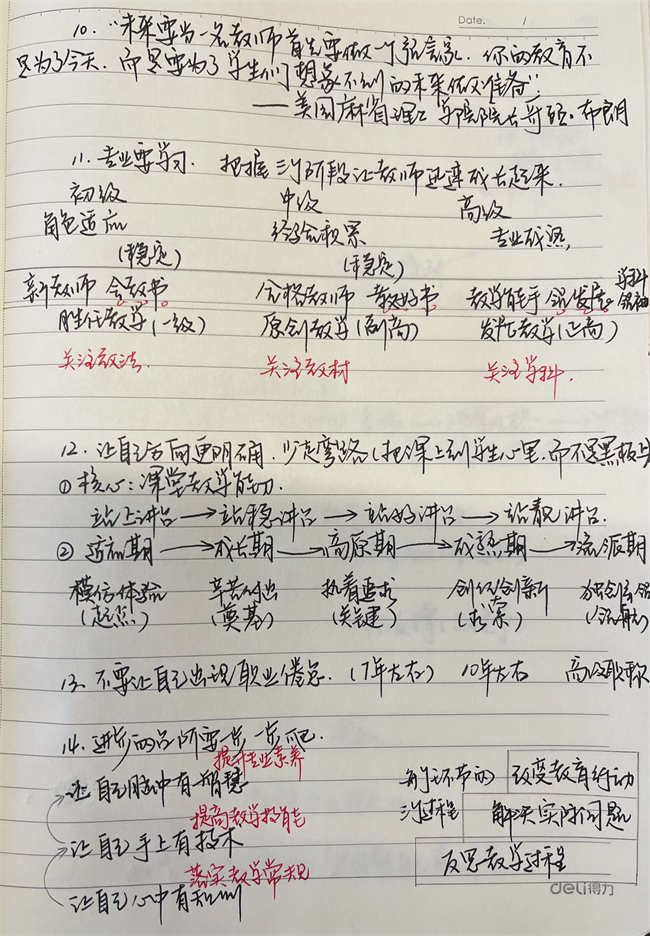 Date. /
10. "未来要当一名教师首先要做一个预言家. 你的教育不
只为了今天. 而且要为了学生们想象不到的未来做准备".
——美国麻省理工学院院长哥顿·布朗
11. 专业要学习. 把握三个阶段让教师迅速成长起来.
初级 中级 高级
角色适应 经验积累 专业成熟,
(稳定) (稳定)
新教师 会教书 合格教师 教好书 教学能手 领发展 学科领袖
胜任教学(一级) 原创教学(副高) 发展教学(正高)
关注教法. 关注教材 关注学科.
12. 让自己方向更明确. 少走弯路(把课上到学生心里.而不是黑板上
① 核心: 课堂教学能力.
站上讲台→站稳讲台→站好讲台→站靓讲台.
② 适应期→成长期→高原期→成熟期→流派期
模仿体验 辛苦付出 执着追求 创优创新 独创
(起点) (奠基) (关键) (探索) (领航)
13. 不要让自己出现职业倦怠. (7年左右) 10年左右 高级职称
14. 进步的台阶要一步一步爬.
提升专业素养
让自己脑中有智慧
提高教学技能
让自己手上有技术
落实教学常规
让自己心中有规则
三个过程
改变教育行动
解决实际问题
反思教学过程
deli得力